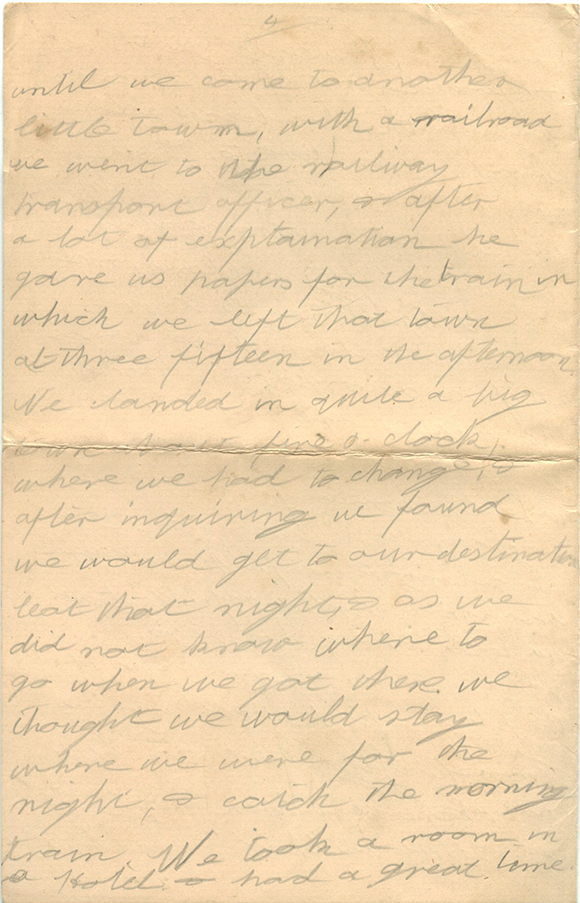 4
until we come to another
little town, with a railroad
we went to the railway
transport officer, & after
a lot of explaination he
gave us papers for the train in
which we left that town
at three fifteen in the afternoon
We landed in quite a big
town five o clock,
where we had to change, &
after inquiring we found
we would get to our destination
leat that night, & as we
did not know where to
go when we got there we
thought we would stay
where we were for the
night, & catch the morning
train. We took a room in
a Hotel & had a great time